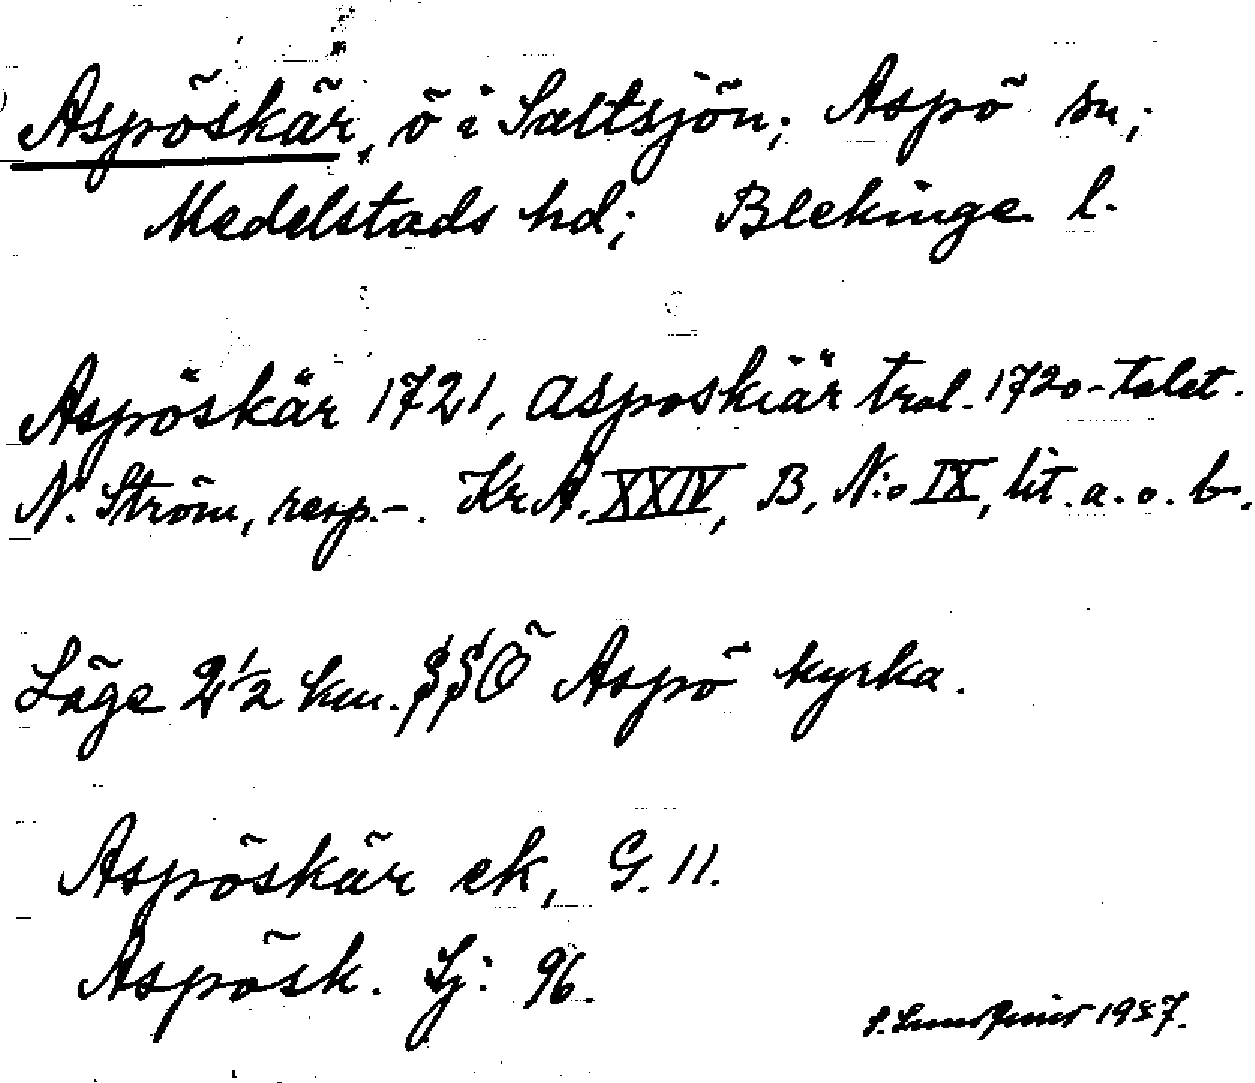 Aspöskär, ö i Saltsjön; Aspö sn;
Medelstads hd; Blekinge l.
Aspöskär 1721, Asposkiär trol. 1720-talet.
N. Ström, resp. -. KrA. XXIV, B, N:o IX, lit. a. o. b.
Läge 2 1/2 km. SSÖ Aspö kyrka.
Aspöskär ek, G. 11.
Aspösk. Sj: 96.
S. Lundqvist 1957.